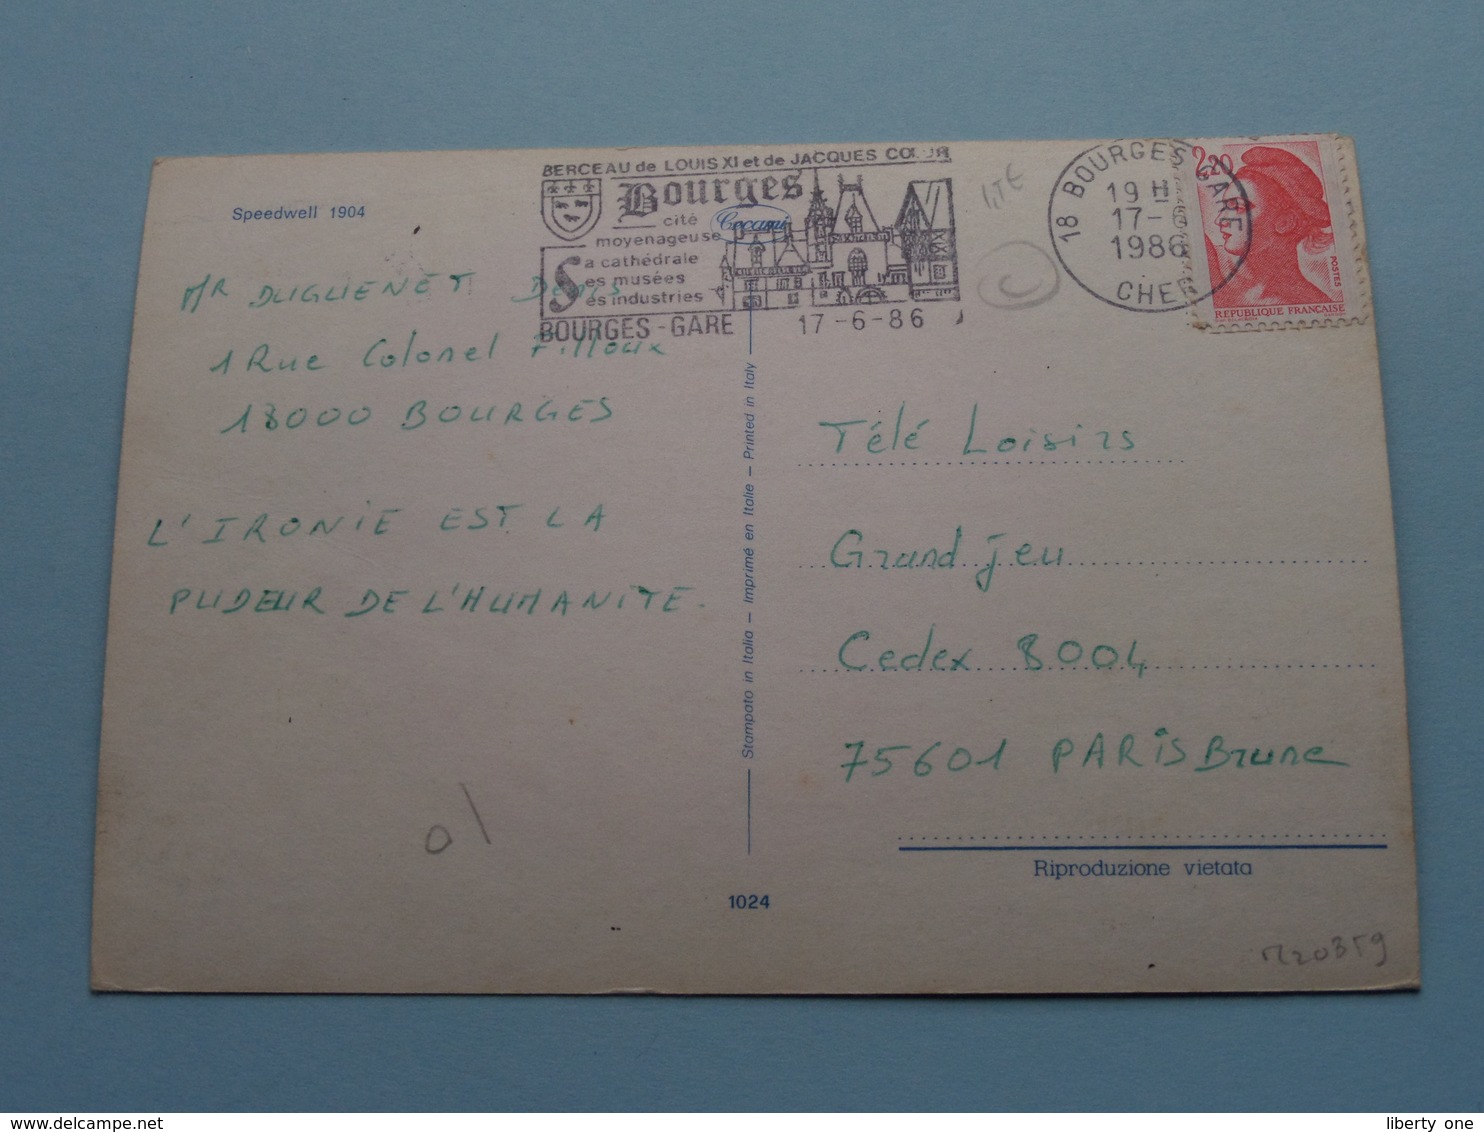 BERCEAU de LOUIS XI et de JACQUES CŒUR
Bourges
cité
moyenageuse
Sa cathédrale
Ses musées
Ses industries
BOURGES-GARE 17-6-86
Cecami
18 BOURGES GARE
19 H
17-6
1986
CHER
2,20
POSTES
REPUBLIQUE FRANCAISE
Speedwell 1904
MR DUGUENET Denis
1 Rue Colonel Filloux
18000 BOURGES
L'IRONIE EST LA
PUDEUR DE L'HUMANITE.
Stampato in Italia – Imprimé en Italie – Printed in Italy
Télé Loisirs
Grand jeu
Cedex 8004
75601 PARIS Brune
Riproduzione vietata
1024
liberty one